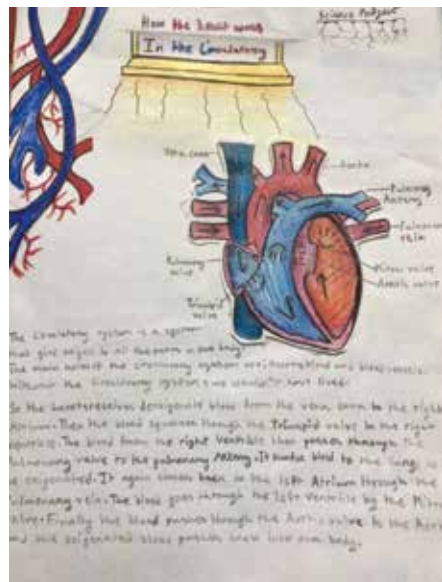 How the Heart works
In the Circulatory
Science Project
Vena cava
Aorta
Pulmonary
Artery
Pulmonary
vein
Pulmonary
valve
Mitral valve
Aortic valve
Tricuspid
valve
The Circulatory system is a system
that give oxygen to all the parts in our body.
The main parts of the circulatory system are heart, blood and blood vessels.
without the circulatory system, we wouldn't have lived.
So the heart receives deoxygenate blood from the vena cava to the right
Atrium. Then the blood squeezes through the Tricuspid valve to the right
ventricle. The blood from the right Ventricle then pushes through the
Pulmonary valve to the pulmonary Artery. It blood to the lungs to
be oxygenated. It again comes back in the left Atrium through the
Pulmonary vein. The blood goes through the left ventricle by the Mitral
Valve. Finally the blood pushes through the Aortic valve to the Aorta
and the oxigenated blood pushes into our body.